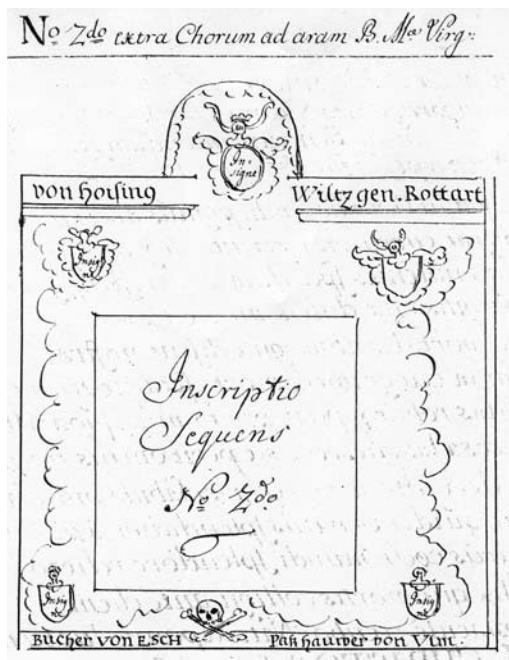 No 2do extra Chorum ad aram B. Mae Virg:
In-
signe
von hoising
Wiltz gen. Rottart
Insig
Inscriptio
Sequens
No 2do
Insig
Insig
Bücher von ESCH
Paßhauwer von Vlm.